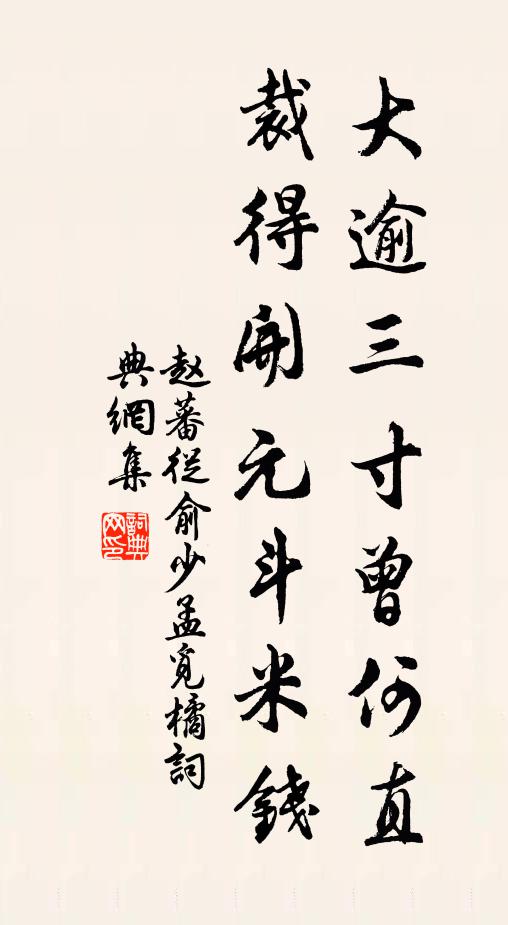 大逾三寸曾何直
裁得開元斗米錢
赵蕃從俞少孟覓橘詞
典網集
詞典
网印